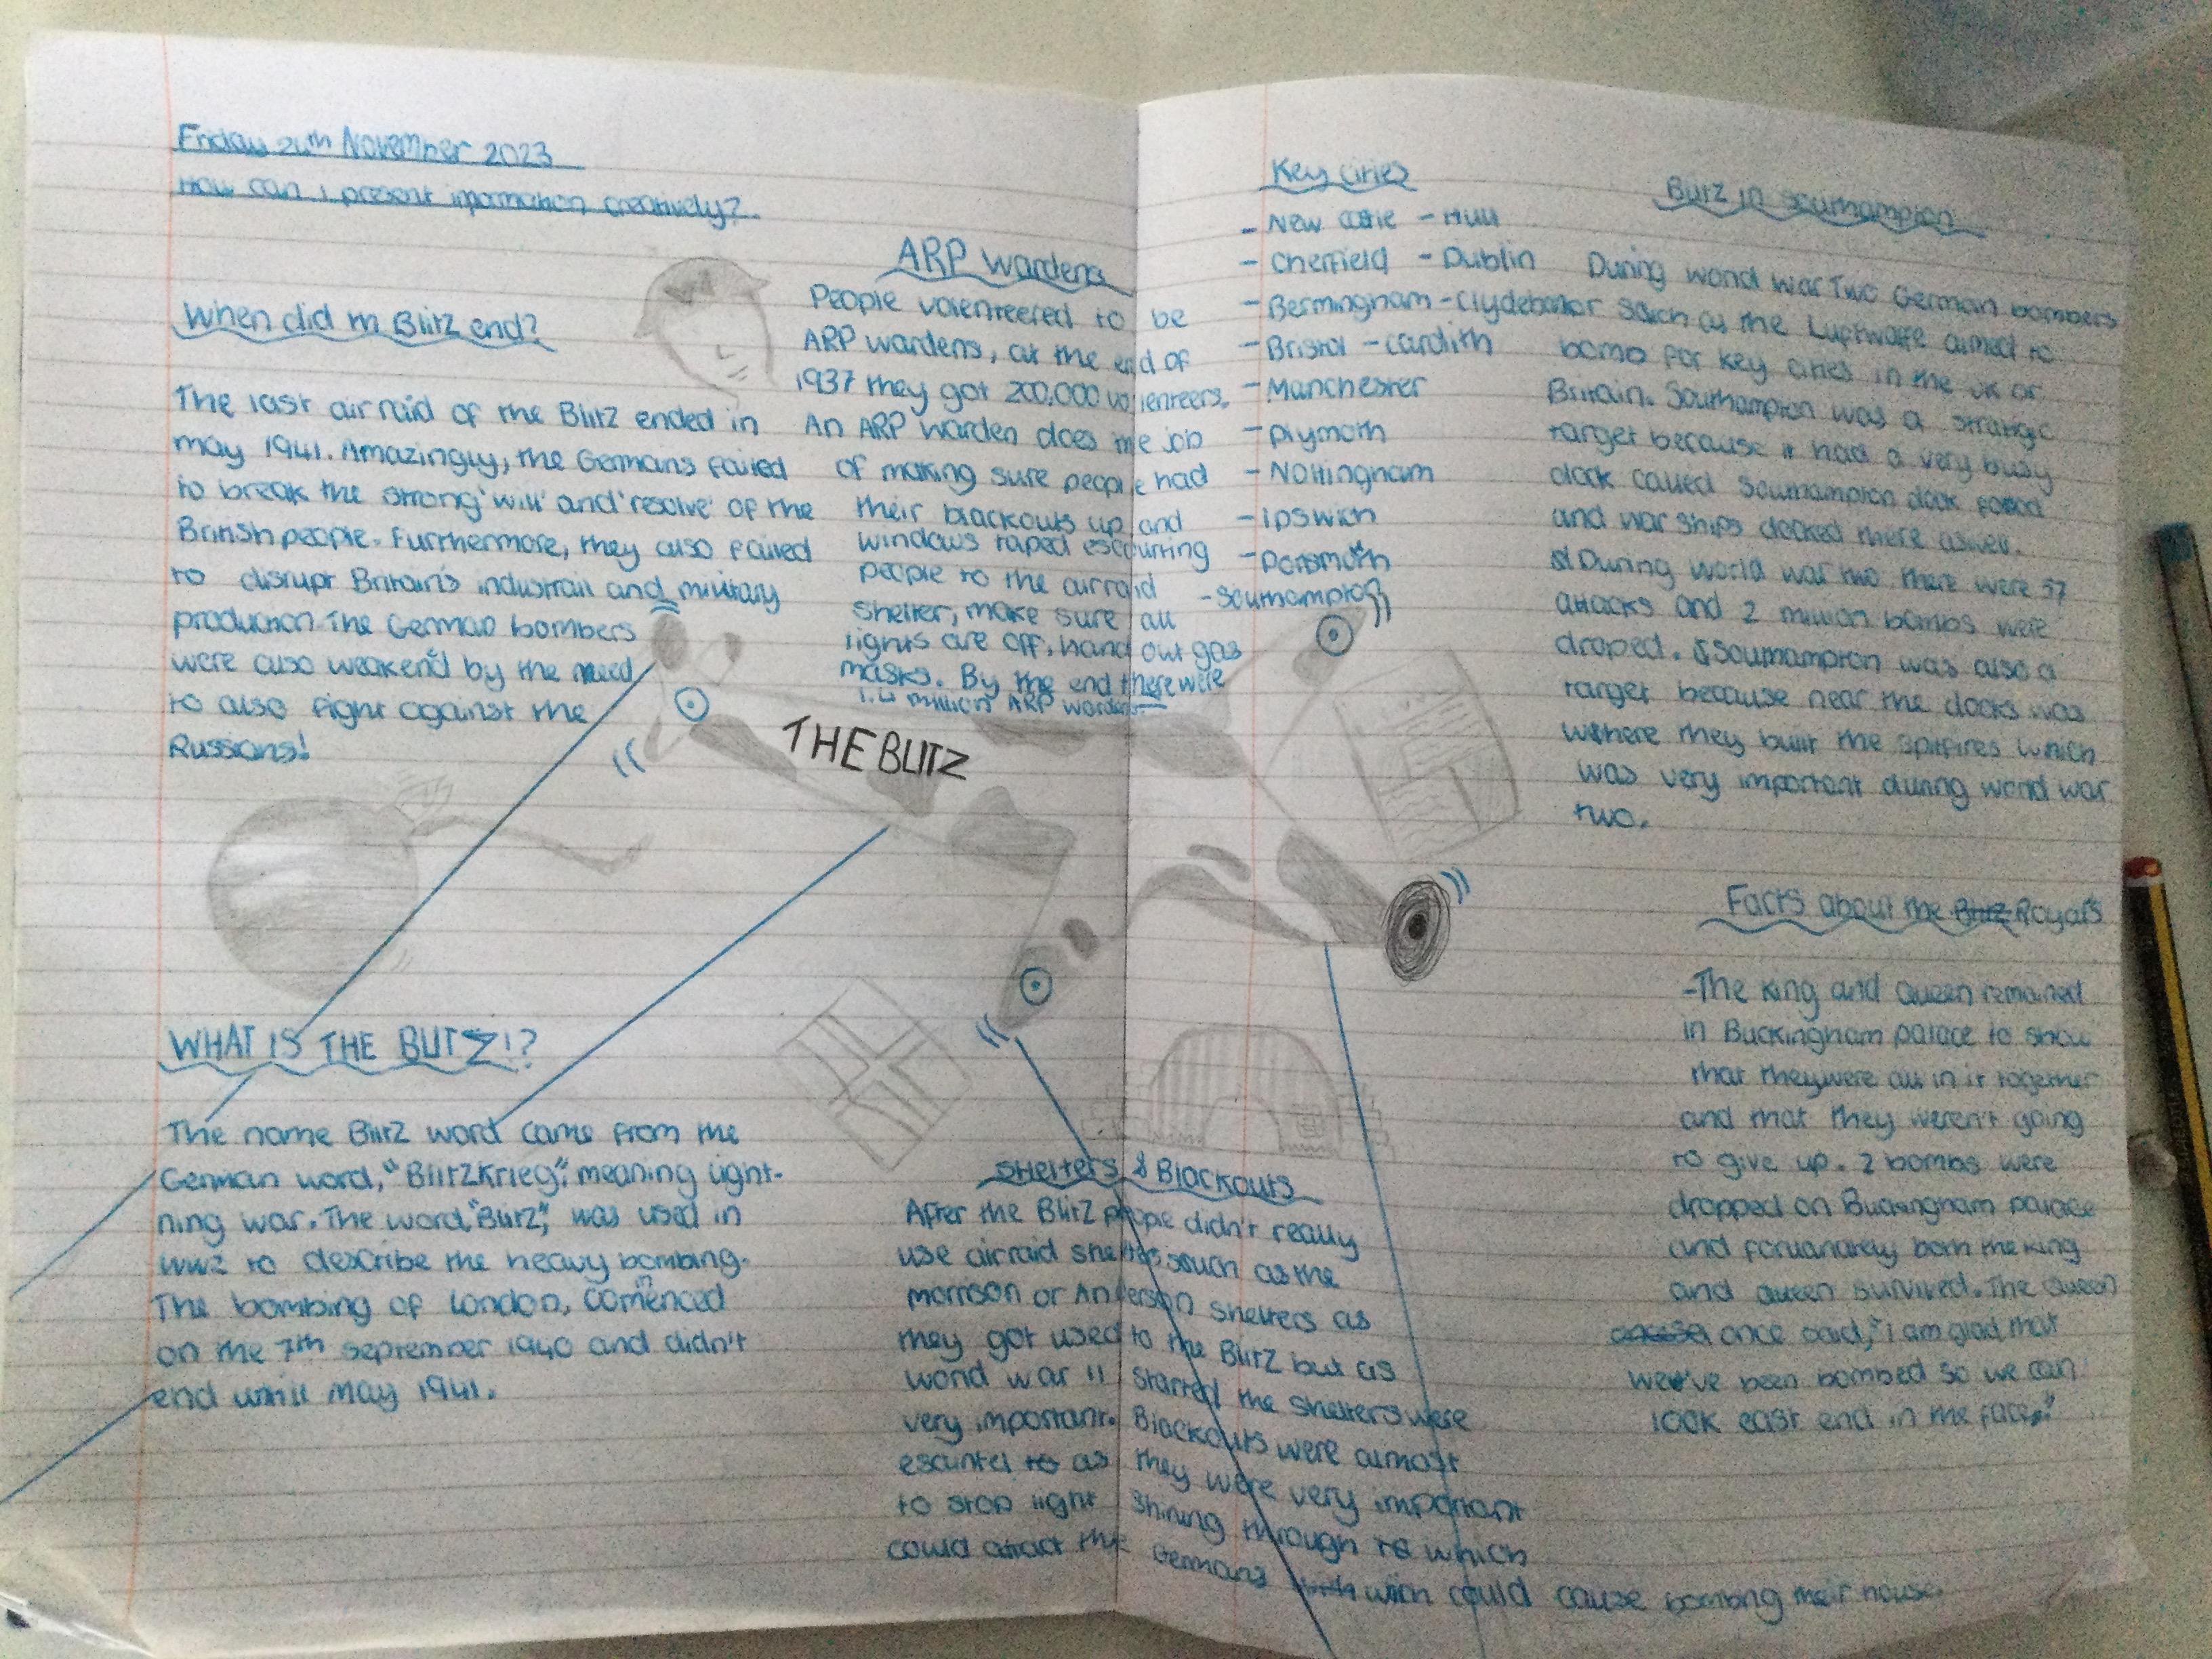 Friday 24th November 2023
How can i present information creatively?
When did th Blitz end?
The last air raid of the Blitz ended in
may 1941. Amazingly, the Germans failed
to break the strong 'will' and 'resolve' of the
British people. Furthermore, they also failed
to disrupt Britain's industrail and military
production. The German bombers
were also weakend by the need
to also fight against the
Russians!
WHAT IS THE BLITZ!?
The name Blitz word came from the
German word, "Blitzkrieg", meaning light-
ning war. The word, "Blitz", was used in
WW2 to describe the heavy bombing.
The bombing of London, commenced
on the 7th september 1940 and didn't
end until May 1941.
ARP Wardens
People volenteered to be
ARP wardens, at the end of
1937 they got 200,000 volenteers.
An ARP warden does the job
of making sure people had
their blackouts up and
windows taped escourting
people to the airraid
shelter, make sure all
lights are off, hand out gas
masks. By the end there were
1.4 million ARP wardens.
THE BLITZ
Shelters & Blackouts
After the Blitz people didn't really
use airraid shelters souch as the
morrison or Anderson shelters as
they got used to the Blitz but as
world war 11 started the shelters were
very important. Blackouts were almost
escuntel to as they were very important
to stop light shining through to which
could attract the Germans with could cause bombing their house.
Key Cities
- New castle - Hull
- Cherfield - Dublin
- Bermingham - Clydebank
- Bristol - cardith
- Manchester
- plymoth
- Nottingham
- Ipswich
- Portsmoth
- Southampton
Blitz in Southampton
During world war Two German bombers
such as the Luftwaffe aimed to
bomb for key cities in the UK or
Britain. Southampton was a stratigic
target because it had a very busy
dock called Southampton dock
and war ships docked there aswell.
During world war two there were 57
attacks and 2 million bombs were
droped. Southampton was also a
target because near the docks was
where they built the Spitfires which
was very important during world war
two.
Facts about the Blitz Royals
-The King and Queen remained
in Buckingham palace to show
that they were all in it together
and that they weren't going
to give up. 2 bombs were
dropped on Buckingham palace
and fortunately both the King
and Queen survived. The Queen
once said, "i am glad that
we've been bombed so we can
look east end in the face."